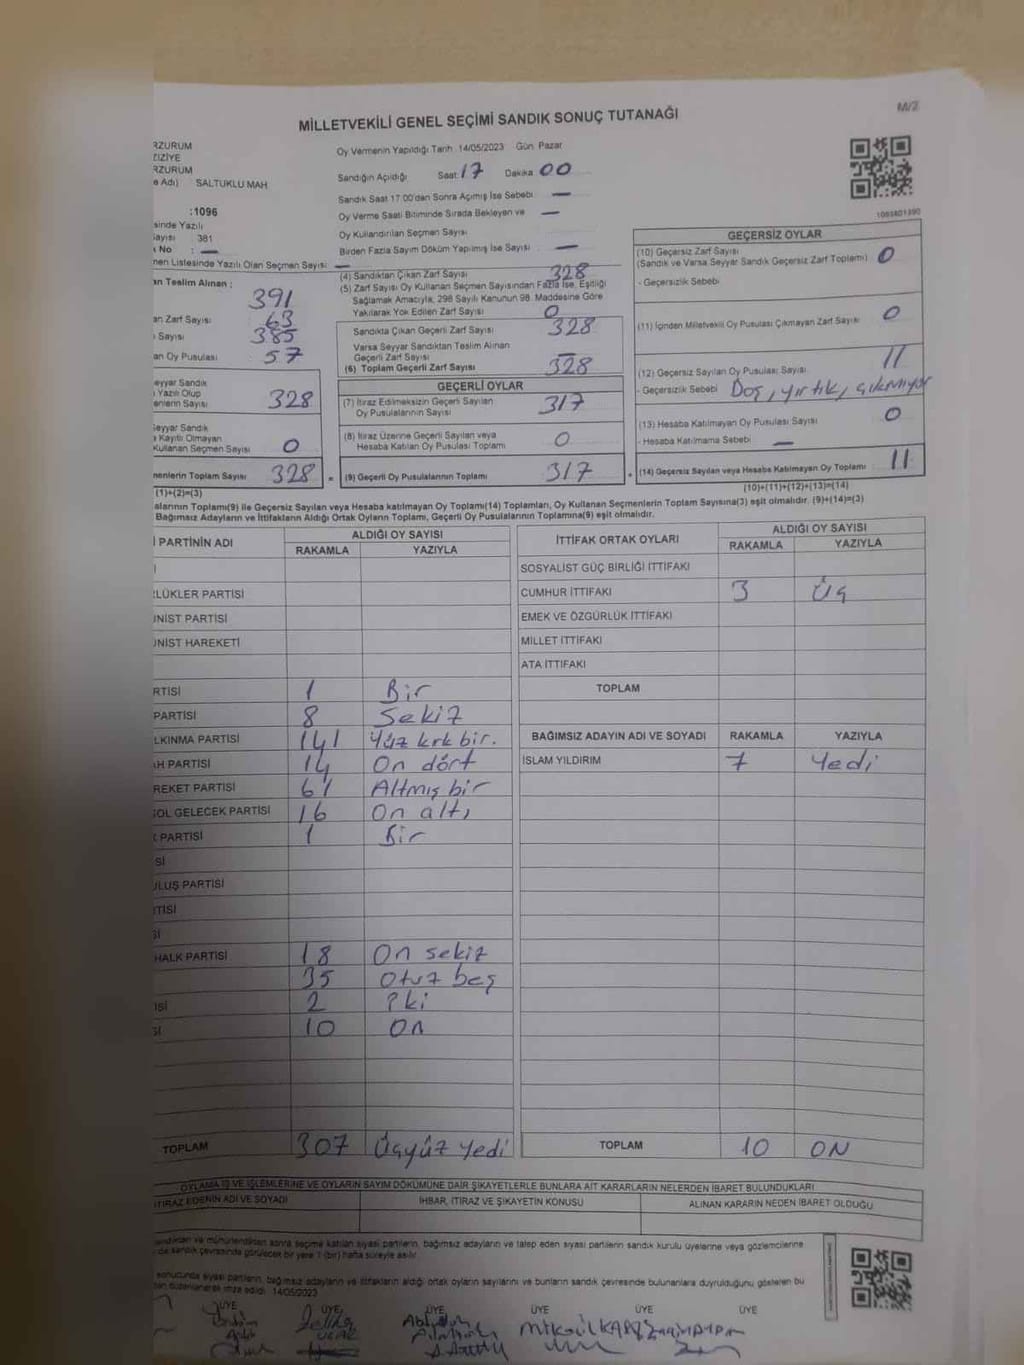 M/2
MİLLETVEKİLİ GENEL SEÇİMİ SANDIK SONUÇ TUTANAĞI
RZURUM
ZİZİYE
RZURUM
e Adı) SALTUKLU MAH
:1096
sinde Yazılı
ayısı 381
k No : —
men Listesinde Yazılı Olan Seçmen Sayısı —
Oy Vermenin Yapıldığı Tarih 14/05/2023 Gün Pazar
Sandığın Açıldığı Saat 17 Dakika 00
Sandık Saat 17.00'dan Sonra Açımış İse Sebebi —
Oy Verme Saati Bitiminde Sırada Bekleyen ve —
Oy Kullandırılan Seçmen Sayısı
Birden Fazla Sayım Döküm Yapılmış İse Sayısı —
1093801390
an Teslim Alınan :
391
an Zarf Sayısı 63
Sayısı 385
an Oy Pusulası 57
eyyar Sandık
Yazılı Olup
enlerin Sayısı 328
Seyyar Sandık
a Kayıtlı Olmayan
Kullanan Seçmen Sayısı 0
menlerin Toplam Sayısı 328
(1)+(2)=(3)
(4) Sandıktan Çıkan Zarf Sayısı 328
(5) Zarf Sayısı Oy Kullanan Seçmen Sayısından Fazla İse, Eşitliği
Sağlamak Amacıyla, 298 Sayılı Kanunun 98. Maddesine Göre
Yakılarak Yok Edilen Zarf Sayısı 0
Sandıkta Çıkan Geçerli Zarf Sayısı 328
Varsa Seyyar Sandıktan Teslim Alınan
Geçerli Zarf Sayısı —
(6) Toplam Geçerli Zarf Sayısı 328
GEÇERLİ OYLAR
(7) İtiraz Edilmeksizin Geçerli Sayılan
Oy Pusulalarının Sayısı 317
(8) İtiraz Üzerine Geçerli Sayılan veya
Hesaba Katılan Oy Pusulası Toplamı 0
(9) Geçerli Oy Pusulalarının Toplamı 317
GEÇERSİZ OYLAR
(10) Geçersiz Zarf Sayısı
(Sandık ve Varsa Seyyar Sandık Geçersiz Zarf Toplamı) 0
- Geçersizlik Sebebi
(11) İçinden Milletvekili Oy Pusulası Çıkmayan Zarf Sayısı 0
(12) Geçersiz Sayılan Oy Pusulası Sayısı 11
- Geçersizlik Sebebi Boş, yırtık, çıkmıyor
(13) Hesaba Katılmayan Oy Pusulası Sayısı 0
- Hesaba Katılmama Sebebi —
(14) Geçersiz Sayılan veya Hesaba Katılmayan Oy Toplamı 11
(10)+(11)+(12)+(13)=(14)
alarının Toplamı(9) ile Geçersiz Sayılan veya Hesaba katılmayan Oy Toplamı(14) Toplamları, Oy Kullanan Seçmenlerin Toplam Sayısına(3) eşit olmalıdır. (9)+(14)=(3)
Bağımsız Adayların ve İttifakların Aldığı Ortak Oyların Toplamı, Geçerli Oy Pusulalarının Toplamına(9) eşit olmalıdır.
İ PARTİNİN ADI ALDIĞI OY SAYISI
RAKAMLA YAZIYLA
LÜKLER PARTİSİ
ÜNİST PARTİSİ
ÜNİST HAREKETİ
RTİSİ 1 Bir
PARTİSİ 8 Sekiz
LKINMA PARTİSİ 141 Yüz kırk bir.
AH PARTİSİ 14 On dört
REKET PARTİSİ 61 Altmış bir
SOL GELECEK PARTİSİ 16 On altı
K PARTİSİ 1 Bir
Sİ
ULUŞ PARTİSİ
RTİSİ
Sİ
HALK PARTİSİ 18 On sekiz
35 Otuz beş
İSİ 2 İki
Sİ 10 On
TOPLAM 307 Üçyüz yedi
İTTİFAK ORTAK OYLARI ALDIĞI OY SAYISI
RAKAMLA YAZIYLA
SOSYALİST GÜÇ BİRLİĞİ İTTİFAKI
CUMHUR İTTİFAKI 3 Üç
EMEK VE ÖZGÜRLÜK İTTİFAKI
MİLLET İTTİFAKI
ATA İTTİFAKI
TOPLAM
BAĞIMSIZ ADAYIN ADI VE SOYADI RAKAMLA YAZIYLA
İSLAM YILDIRIM 7 Yedi
TOPLAM 10 ON
OYLAMA İŞ VE İŞLEMLERİNE VE OYLARIN SAYIM DÖKÜMÜNE DAİR ŞİKAYETLERLE BUNLARA AİT KARARLARIN NELERDEN İBARET BULUNDUKLARI
İTİRAZ EDENİN ADI VE SOYADI İHBAR, İTİRAZ VE ŞİKAYETİN KONUSU ALINAN KARARIN NEDEN İBARET OLDUĞU
andıktan ve mühürlendikten sonra seçime katılan siyasi partilerin, bağımsız adayların ve talep eden siyasi partilerin sandık kurulu üyelerine veya gözlemcilerine
de sandık çevresinde görülecek bir yere 1 (bir) hafta süreyle asılır.
sonucunda siyasi partilerin, bağımsız adayların ve ittifakların aldığı ortak oyların sayılarını ve bunların sandık çevresinde bulunanlara duyrulduğunu gösteren bu
düzenlenerek imza edildi. 14/05/2023
ÜYE ÜYE ÜYE ÜYE ÜYE ÜYE